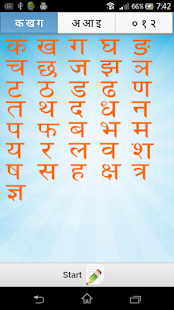 7:42
क ख ग अ आ इ ० १ २
क ख ग घ ङ
च छ ज झ ञ
ट ठ ड ढ ण
त थ द ध न
प फ ब भ म
य र ल व श
ष स ह क्ष त्र
ज्ञ
Start